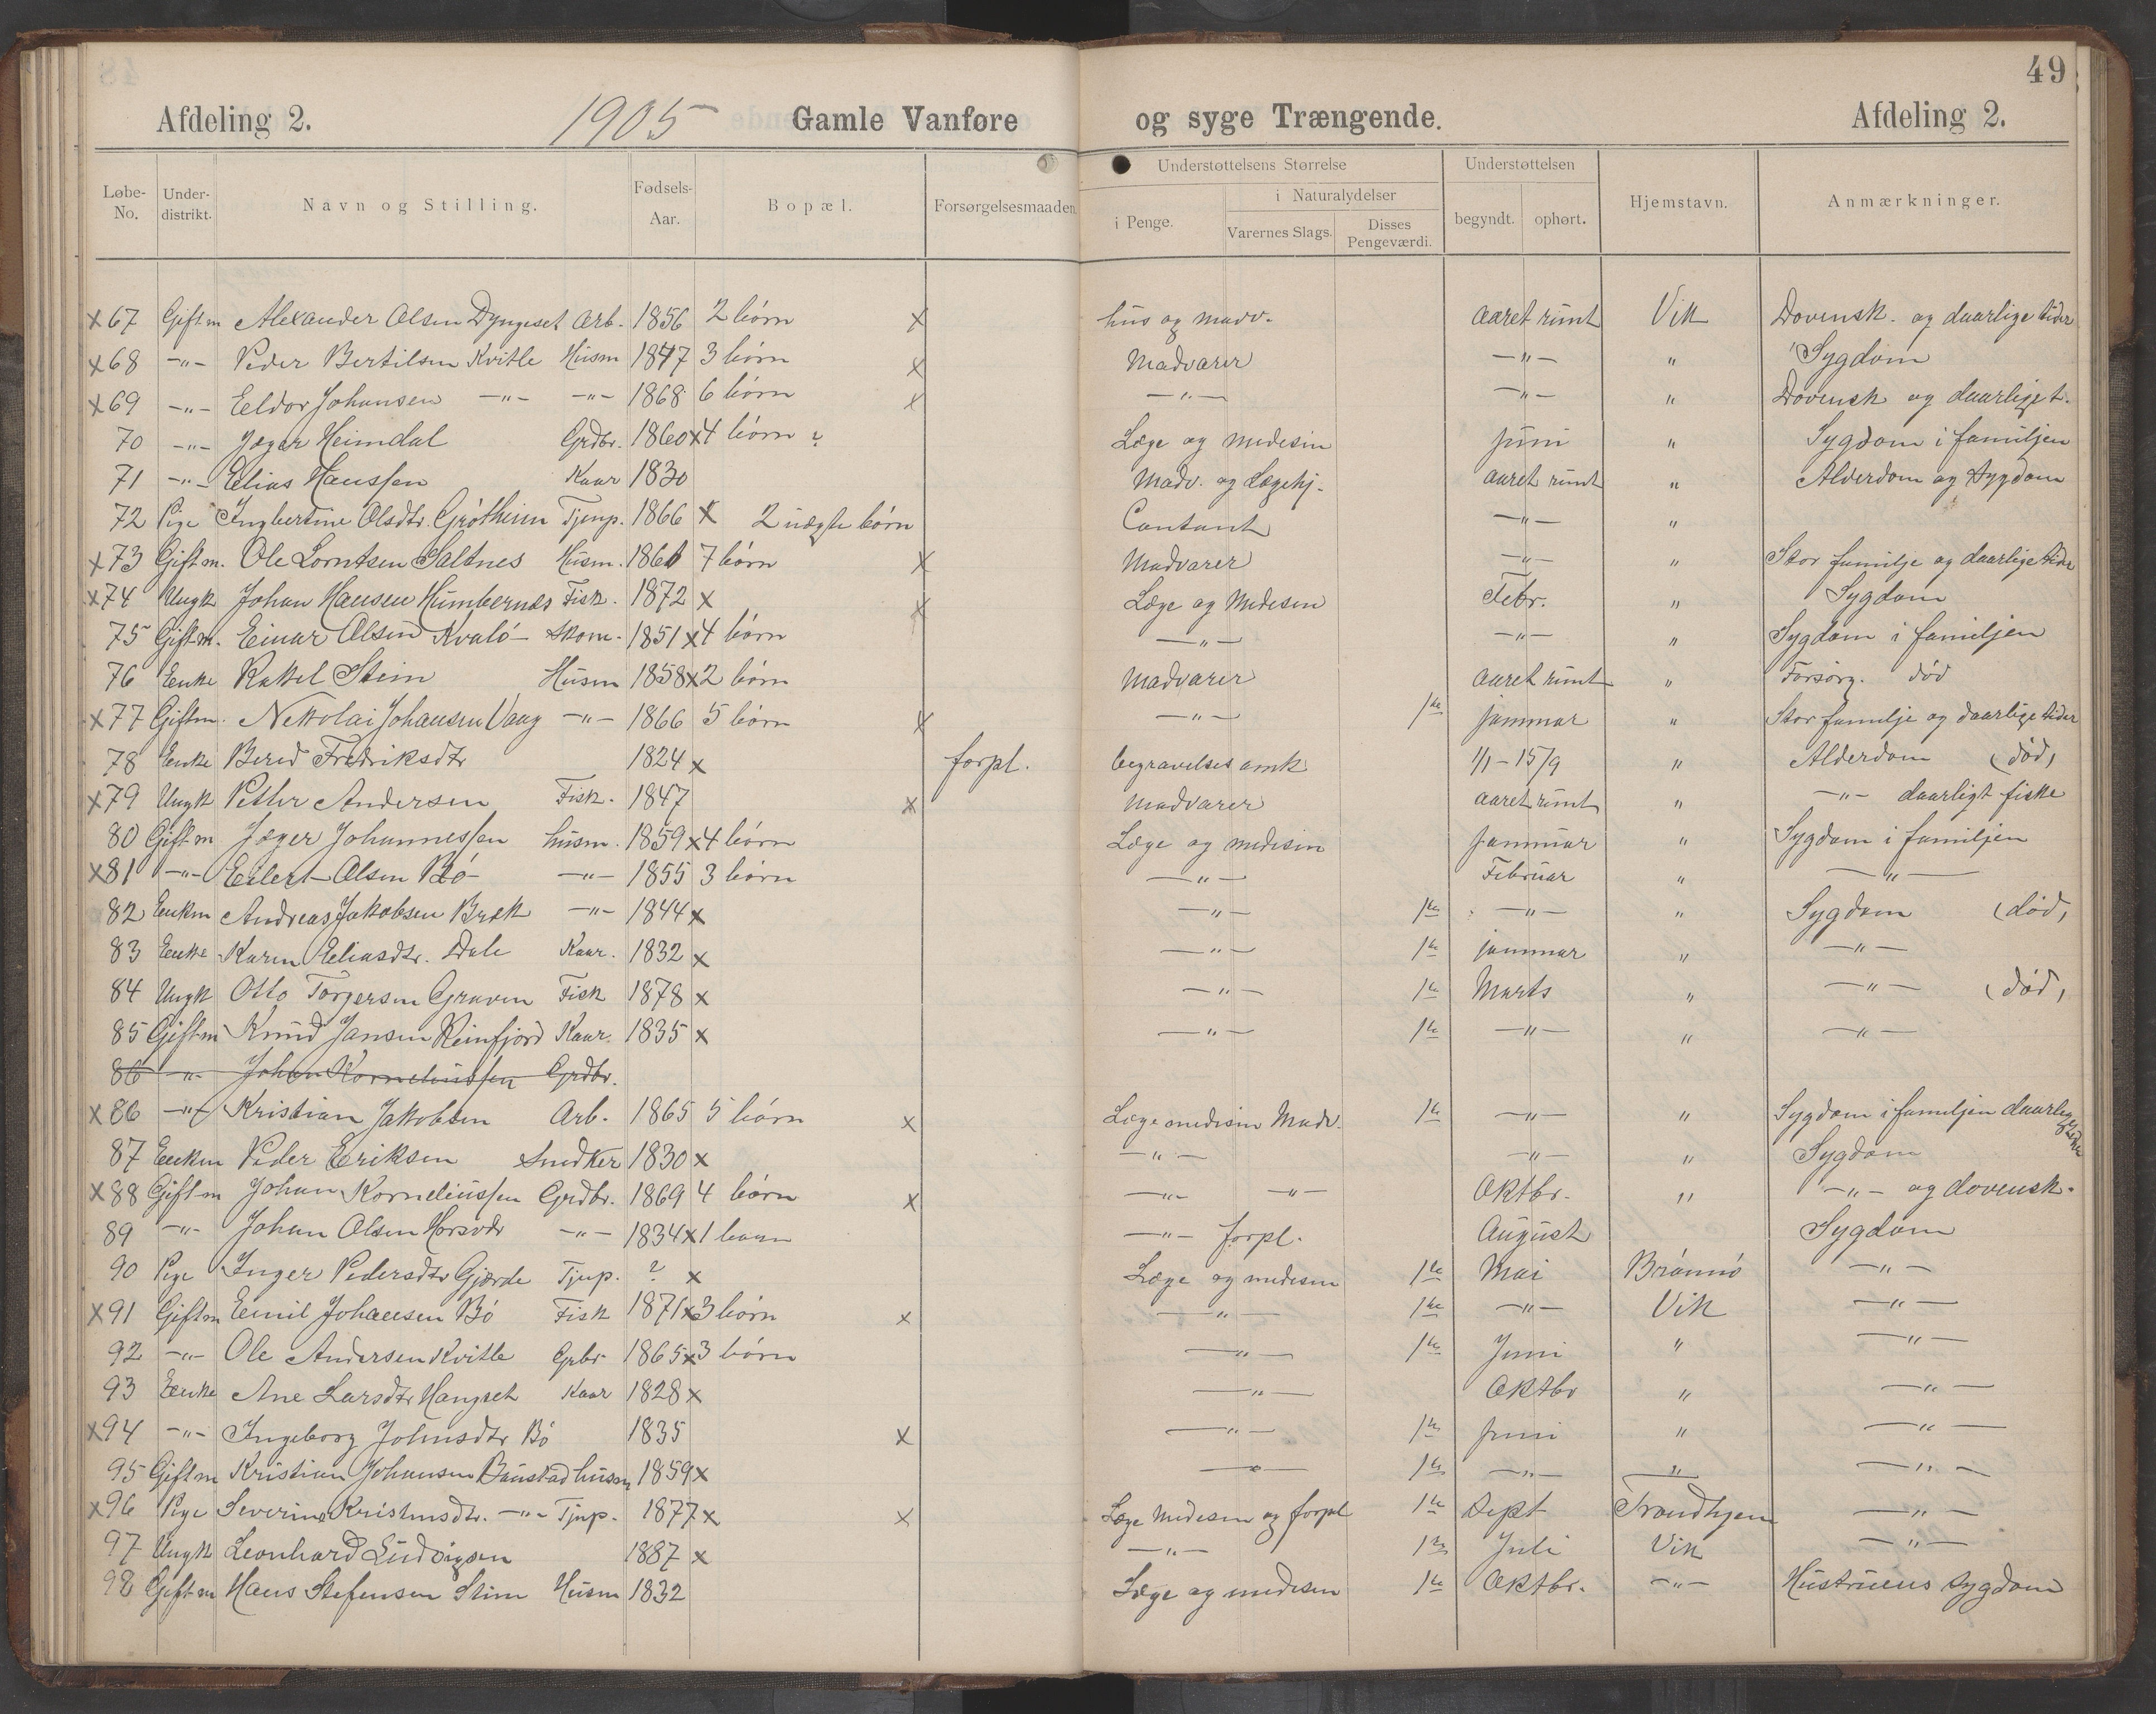 49
Afdeling 2. 1905 Gamle Vanføre og syge Trængende. Afdeling 2.
Løbe-No. Under-distrikt. Navn og Stilling. Fødsels-Aar. Bopæl. Forsørgelsesmaaden. Understøttelsens Størrelse i Penge. i Naturalydelser Varernes Slags. Disses Pengeværdi. Understøttelsen begyndt. ophørt. Hjemstavn. Anmærkninger.
x 67 Gift m Alexander Olsen Dyngeset Arb. 1856 2 börn x hus og madv. aaret rundt Vik Dovensk. og daarlige tider
x 68 -"- Peder Bertilsen Kvitle Husm 1847 3 börn x Madvarer -"- " Sygdom
x 69 -"- Eeldor Johansen -"- -"- 1868 6 börn x -"- -"- " Dovensk og daarlige t.
70 -"- Jæger Heimdal Grdbr. 1860 x 4 börn ? Læge og medesin Juni " Sygdom i familjen
71 -"- Elias Hanssen Kaar 1830 Madv. og Lægehj. aaret rundt " Alderdom og Sygdom
72 Pige Ingbertine Olsdtr. Grötheim Tjenp. 1866 x 2 uægte börn Contant -"- "
x 73 Gift m. Ole Lorntsen Saltnes Husm. 1861 7 börn x Madvarer -"- " Stor familje og daarlige tider
x 74 Ungk Johan Hansen Humbernes Fisk. 1872 x x Læge og Medesin Febr. " Sygdom
75 Gift m. Einar Olsen Kvalö Skom. 1851 x 4 börn -"- -"- " Sygdom i familjen
76 Enke Rakel Stein Husm 1858 x 2 börn Madvarer aaret rundt " Forsörg. död
x 77 Gift m. Nekolai Johansen Vang -"- 1866 5 börn x -"- 1ste januar " Stor familje og daarlige tider
78 Enke Bered Fredriksdtr 1824 x forpl. begravelses omk 1/1 - 15/9 " Alderdom (död)
x 79 Ungk Petter Andersen Fisk. 1847 x Madvarer aaret rundt " -"- daarligt fiske
80 Gift m Jæger Johannessen husm. 1859 x 4 börn Læge og medesin Januar " Sygdom i familjen
x 81 -"- Eilert Olsen Bö -"- 1855 3 börn -"- Februar " -"-
82 Enkm Andreas Jakobsen Bræk -"- 1844 x -"- 1ste -"- " Sygdom (död)
83 Enke Karen Eliasdtr. Dale Kaar. 1832 x -"- 1ste januar " -"-
84 Ungk Otto Torgersen Graven Fisk 1878 x -"- 1ste Marts " -"- (död)
85 Gift m Knud Jansen Reinfjord Kaar. 1835 x -"- 1ste -"- " -"-
86 -"- Johan Korneliussen Grdbr.
x 86 -"- Kristian Jakobsen Arb. 1865 5 börn x Læge medesin Madv. 1ste -"- " Sygdom i familjen daarlige tider
87 Enkm Peder Eriksen Snedker 1830 x -"- -"- " Sygdom
x 88 Gift m Johan Korneliussen Grdbr. 1869 4 börn x -"- -"- Oktbr. " -"- og dovensk.
89 -"- Johan Olsen Horsvær -"- 1834 x 1 barn -"- forpl. August Sygdom
90 Pige Inger Pedersdtr Gjærde Tjnp. ? x Læge og medesin 1ste Mai Brönnö -"-
x 91 Gift m Eemil Johansen Bö Fisk 1871 x 3 börn x -"- 1ste -"- Vik -"-
92 -"- Ole Andersen Kvitle Grbr 1865 x 3 börn -"- 1ste Juni " -"-
93 Eenke Ane Larsdtr Hangset Kaar 1828 x -"- Oktbr " -"-
x 94 -"- Ingeborg Johnsdtr Bö 1835 x -"- 1ste Juni " -"-
95 Gift m Kristian Johansen Baustad husm 1859 x -"- 1ste -"- " -"-
x 96 Pige Severine Kristensdtr. -"- Tjnp. 1877 x x Læge Medesin og forpl 1ste Sept Trondhjem -"-
97 Ungk Leonhard Ludvigsen 1887 x -"- 1ste Juli Vik -"-
98 Gift m Hans Stefensen Stein Husm 1832 Læge og medesen 1ste Oktbr. -"- Hustruens Sygdom